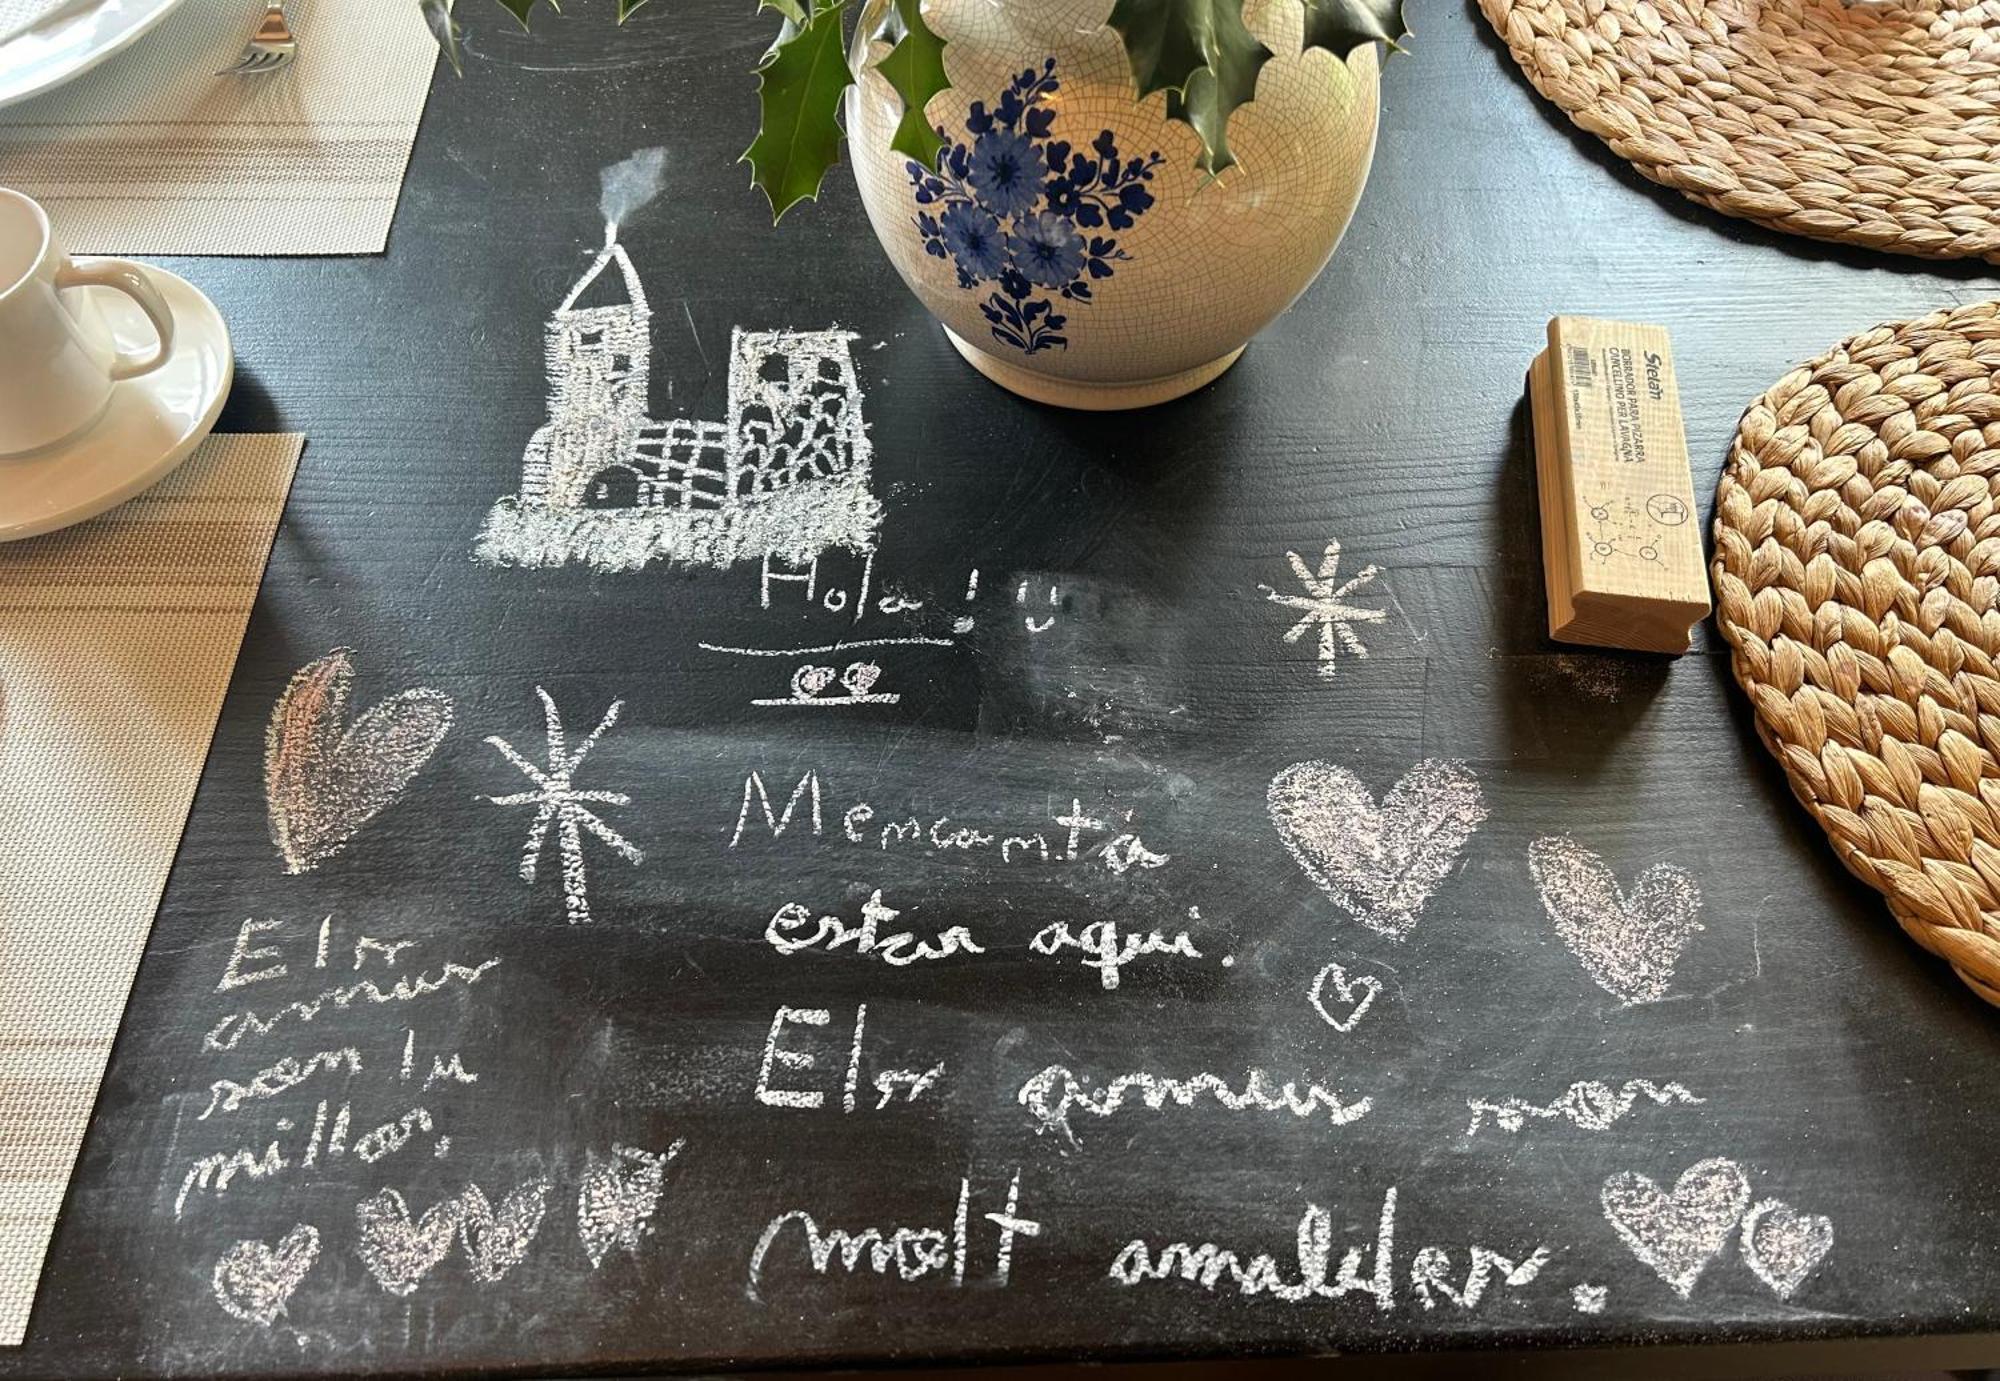 Hola!
M'encanta
estar aquí.
Els gomes son
molt amables.
Els
amus
son lu
millor.
Stelan
BORRADOR PARA PIZARRA
CANCELLINO PER LAVAGNA